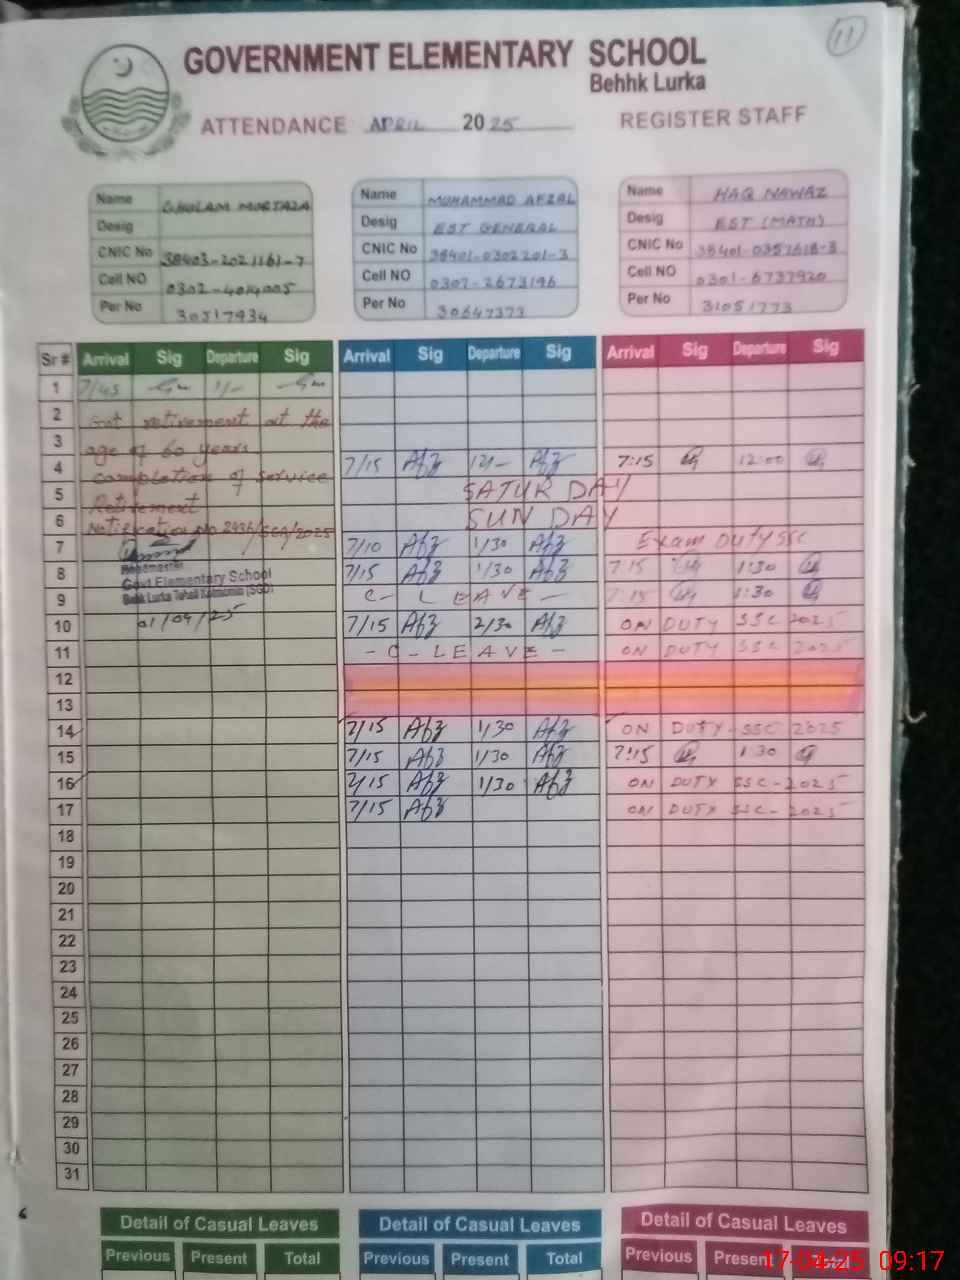 11
GOVERNMENT ELEMENTARY SCHOOL
Behhk Lurka
ATTENDANCE APRIL 2025 REGISTER STAFF
Name GHULAM MURTAZA
Desig
CNIC No 38403-2021161-7
Cell NO 0302-4014005
Per No 30517934
Name MUHAMMAD AFZAL
Desig EST GENERAL
CNIC No 38401-0302201-3
Cell NO 0307-2673196
Per No 30647373
Name HAQ NAWAZ
Desig EST (MATH)
CNIC No 38401-0357618-3
Cell NO 0301-6737920
Per No 31051773
Sr # Arrival Sig Departure Sig Arrival Sig Departure Sig Arrival Sig Departure Sig
1 7/45 1/-
2 Got retirement at the
3 age of 60 years.
4 completion of service 7/15 Afz 12/- Afz 7:15 12:00
5 Retirement SATUR DAY
6 Notification no 2436/SEA/2025 SUN DAY
7 7/10 Afz 1/30 Afz Exam Duty SSC
8 Headmaster 7/15 Afz 1/30 Afz 7:15 1:30
Govt Elementary School
9 Behk Lurka Tehsil C- LEAVE - 7:15 1:30
10 01/04/25 7/15 Afz 2/30 Afz ON DUTY SSC 2025
11 - C - LEAVE - ON DUTY SSC 2025
12
13
14 7/15 Afz 1/30 Afz ON DUTY-SSC 2025
15 7/15 Afz 1/30 Afz 7:15 1:30
16 7/15 Afz 1/30 Afz ON DUTY SSC-2025
17 7/15 Afz ON DUTY SSC-2025
18
19
20
21
22
23
24
25
26
27
28
29
30
31
Detail of Casual Leaves Detail of Casual Leaves Detail of Casual Leaves
Previous Present Total Previous Present Total Previous Present Total
17-04-25 09:17